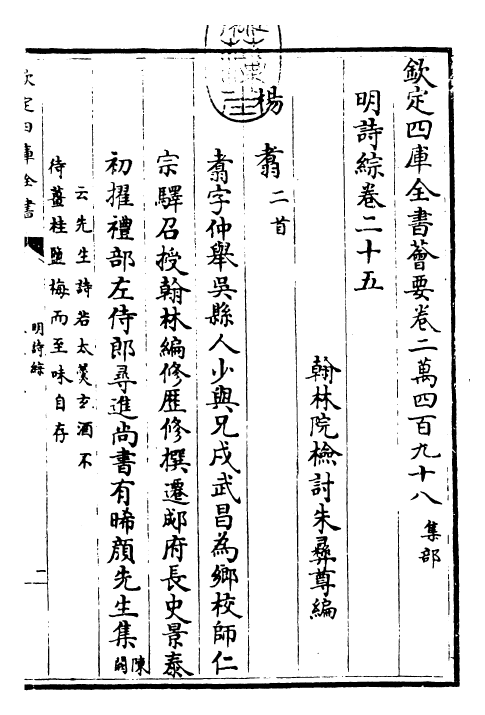 欽定四庫全書薈要卷二萬四百九十八 集部
明詩綜卷二十五
翰林院檢討朱彝尊編
楊翥二首
翥字仲舉吳縣人少與兄戍武昌為鄉校師仁
宗驛召授翰林編修歴修撰遷郕府長史景泰
初擢禮部左侍郎尋進尚書有晞顔先生集 陳
嗣
云先生詩若太羮玄酒不
待薑桂鹽梅而至味自存
欽定四庫全書
明詩綜